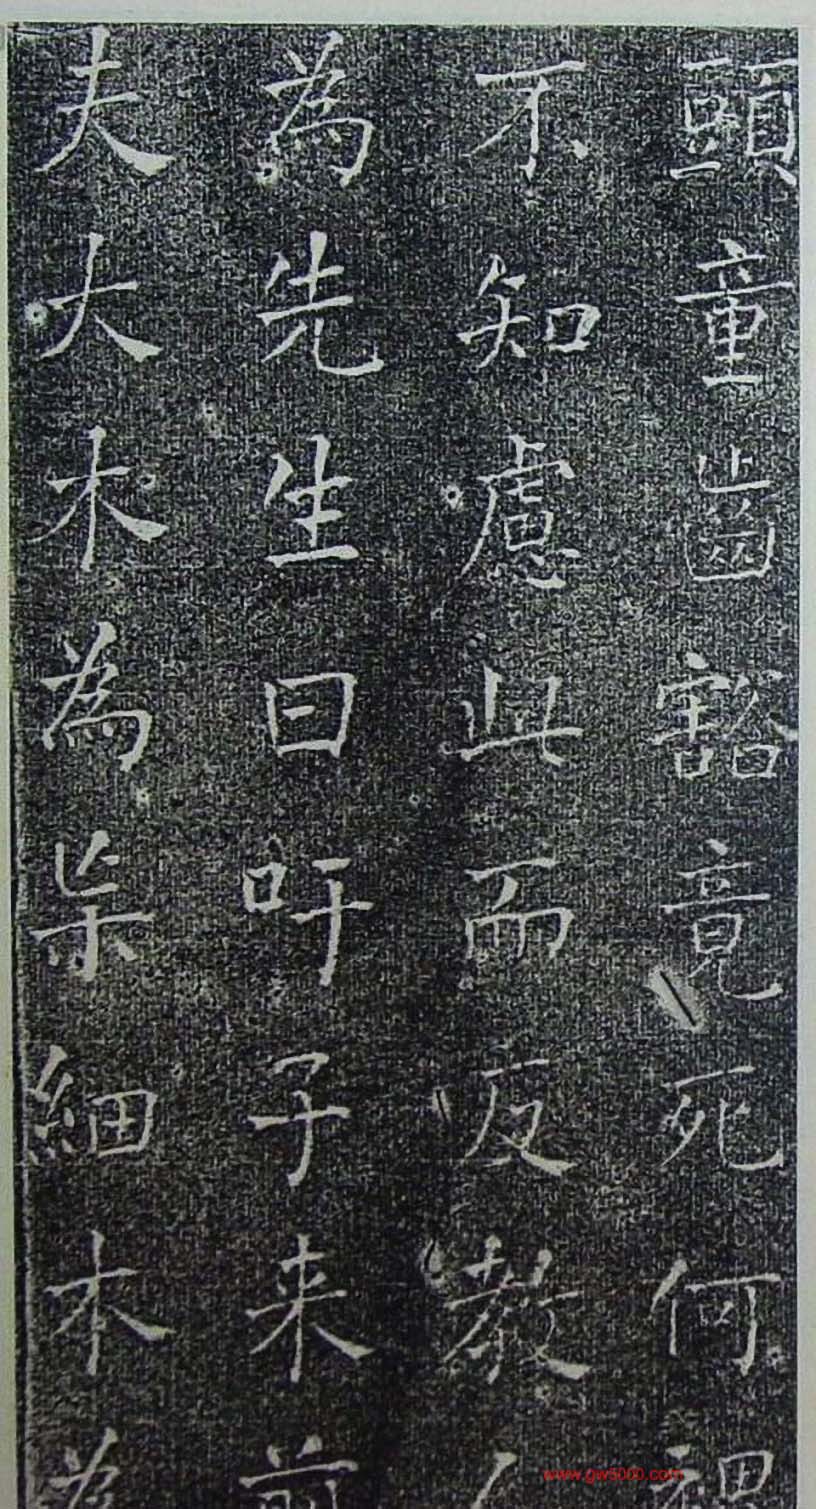 頭童齒豁竟死何裨
不知慮此而反教人
為先生曰吁子来前
夫大木為杗細木為
www.gw5000.com